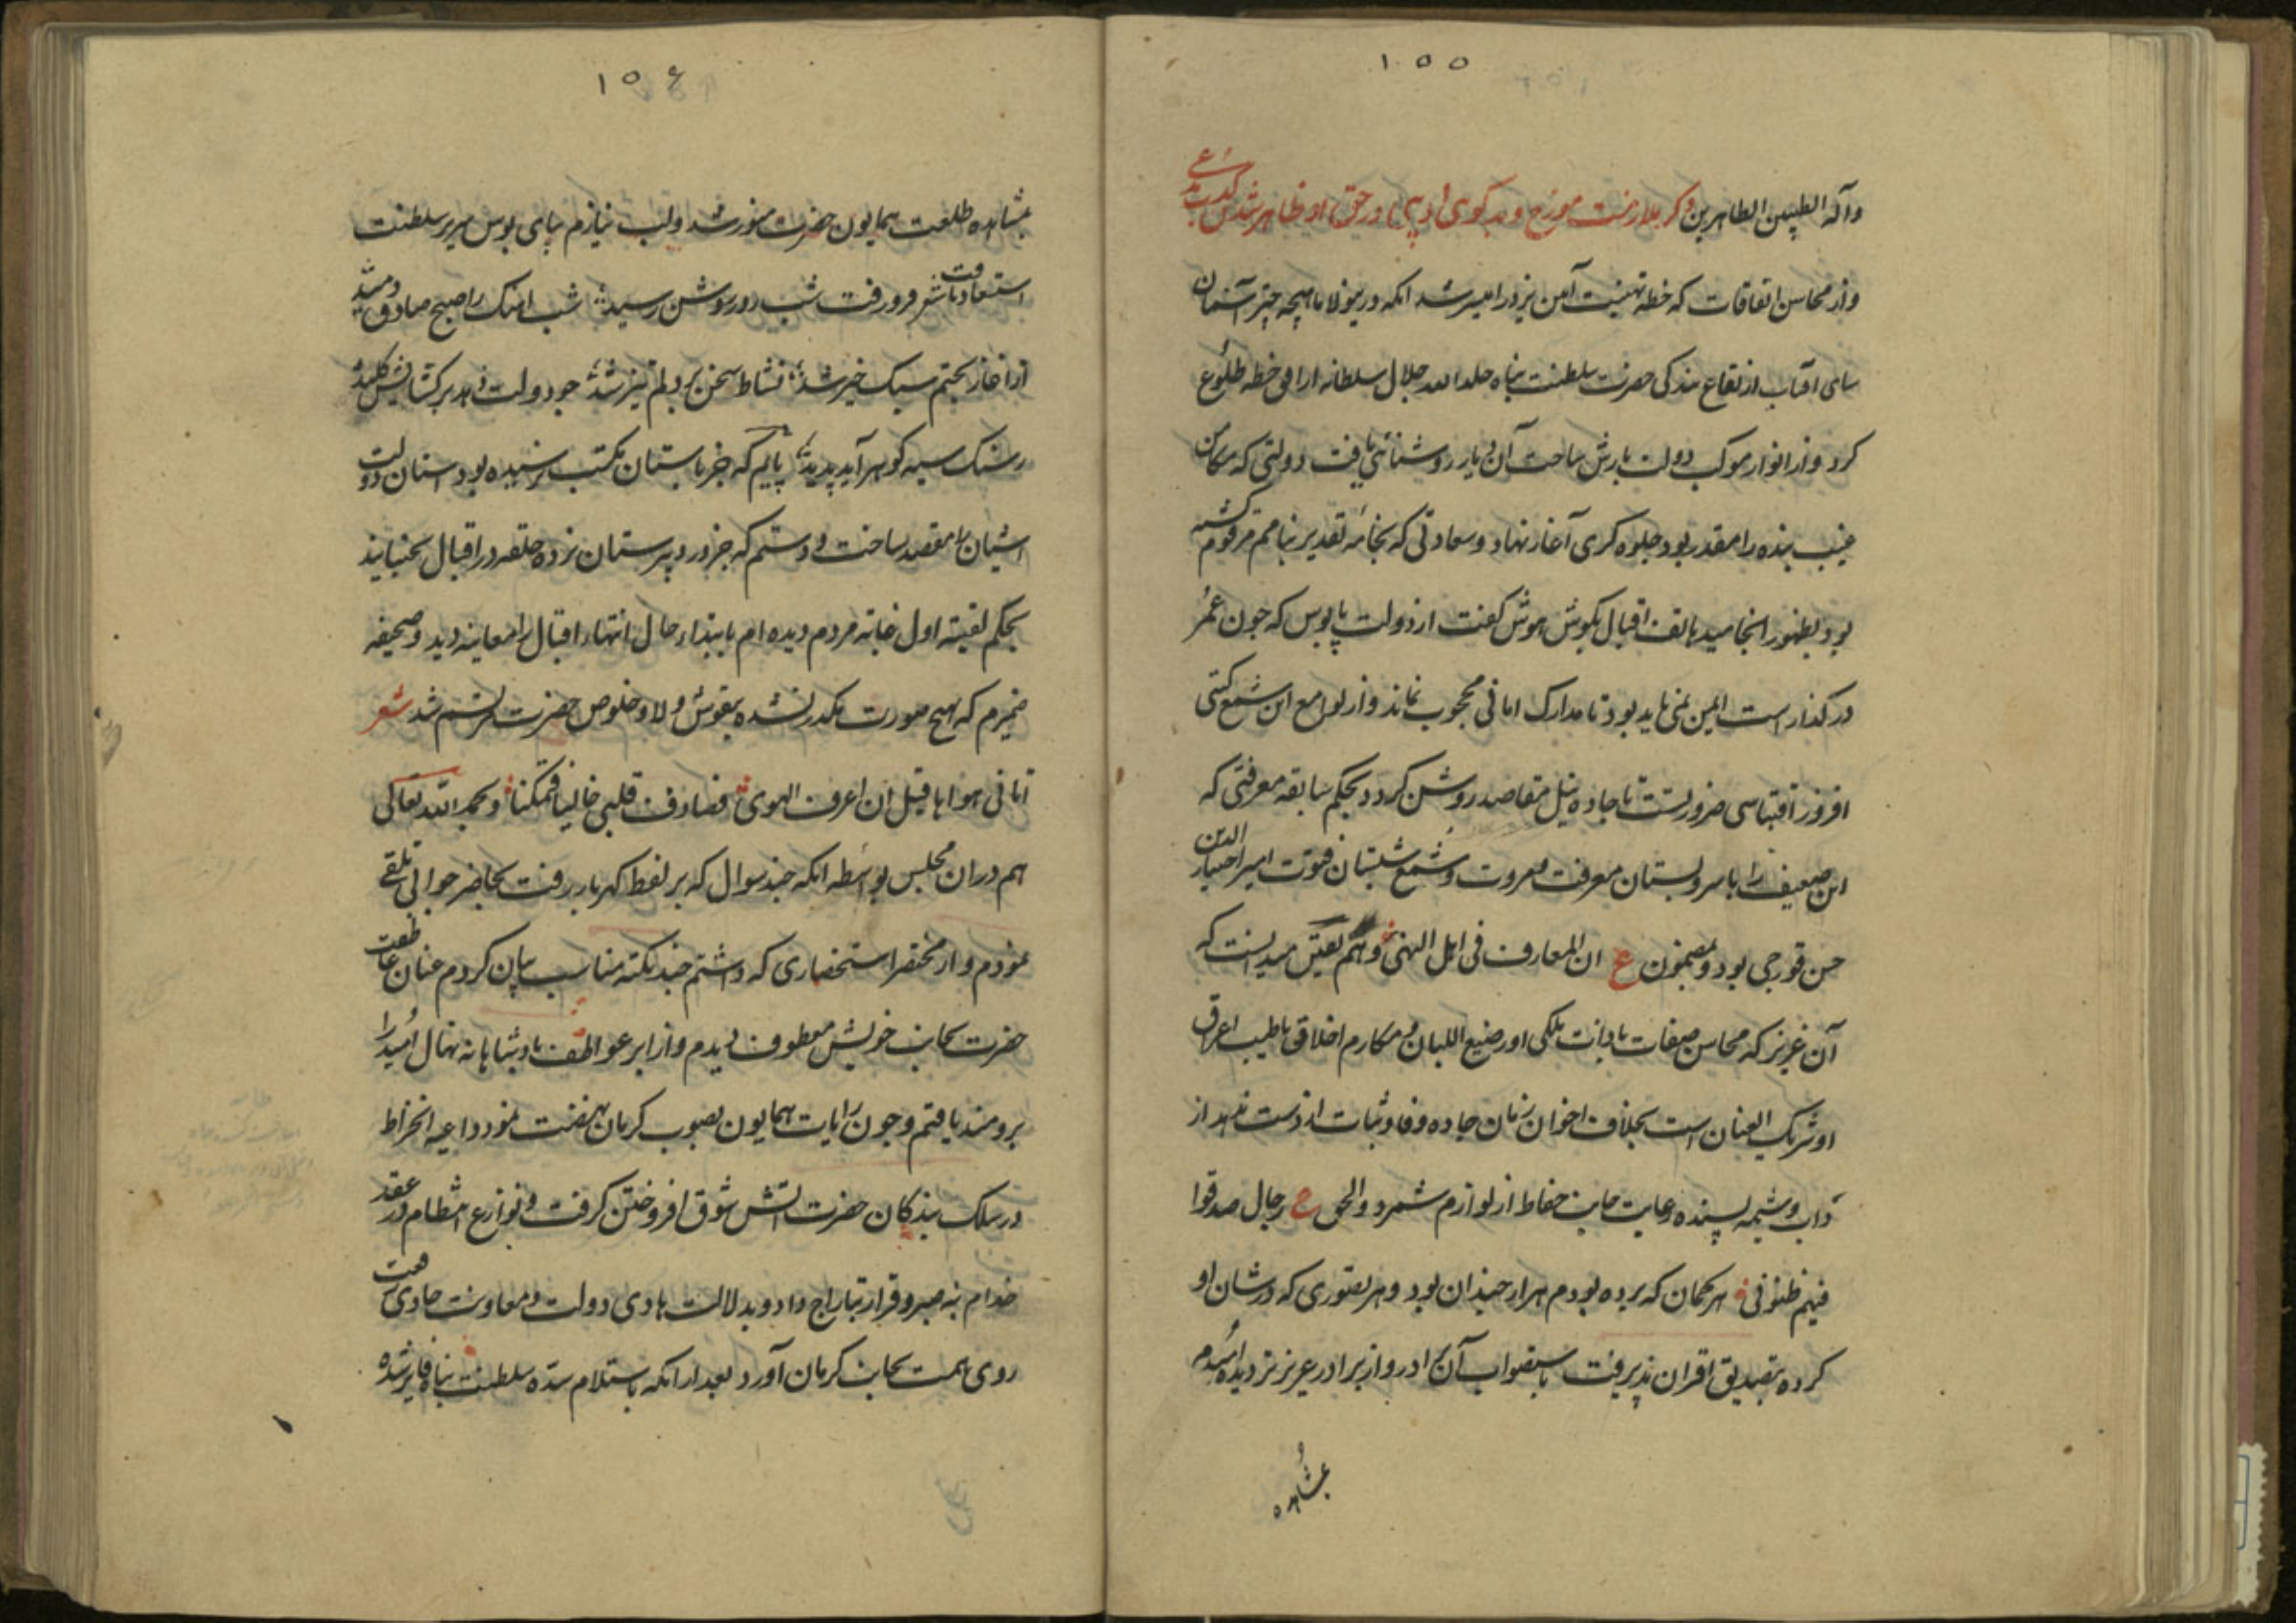 ۱۵۵
وآله الطیبین الطاهرین ذکر ملازمت مورخ و
واز محاسن اتفاقات که خطه تهنیت آمن یزد را میسر شد انکه در ماهچه چتر آسمان
سای افتاب ارتفاع بندکی حضرت سلطنت پناه خلد الله جلال سلطانه از افق خطه طلوع
کرد واز انوار موکب دولت یارش ساحت آن دیار روشنائی یافت دولتی که در مکامن
غیب بنده را مقدر بود جلوه کری آغاز نهاد وسعادتی که بخامه تقدیر بنامم مرقوم کشته
بود بظهور انجامید هاتف اقبال بکوش هوش کفت از دولت پابوس که چون عمر
در کذار است ایمن نمی باید بود تا مدارک امانی محجوب نماند واز لوامع این شمع کیتی
افروز اقتباسی ضرورتست تا جاده نیل مقاصد روشن کردد بحکم سابقه معرفتی که
این ضعیف را با سرو بستان معرفت ومروت وشمع شبستان فتوت امیر اختیار الدین
حسن قورچی بود ومضمون ع ان المعارف فی اهل النهی ذمم یقین میدانست که
آن عزیز که محاسن صفات با ذات ملکی او رضیع اللبان ومکارم اخلاق با طیب اعراق
او شریک العنان است بخلاف اخوان زمان جاده وفا وثبات از دست ندهد واز
آداب وشیمه پسندیده رعایت جانب حفاظ از لوازم شمرد والحق ع رجال صدقوا
فیهم ظنونی هر کمان که برده بودم هزار چندان بود وهر تصوری که در شان او
کرده بتصدیق اقران پذیرفت باستصواب آن برادر واز برادر عزیز تر دیده امیدم
بمشاهده
۱۵۶
بمشاهده طلعت همایون حضرت منور شد ولب نیازم بپای بوس سریر سلطنت
استسعاد یافت شعر فرو رفت شب روز روشن رسید شب انک را صبح صادق دمید
از آغاز بختم سبک خیز شد نشاط سخن بر دلم تیز شد چو دولت دهد بر کشایش کلید
ز سنک سیه کوهر آید پدید پایم که جز باستان مکتب نرسیده بود ستان دولت
اشیان را مقصد ساخت ودستم که جز در دبیرستان نزده حلقه در اقبال بجنبانید
بحکم لقیته اول خانه مردم دیده ام بابتداء حال انتهاء اقبال را معاینه دید وصحیفه
ضمیرم که بهیچ صورت مکدر نشده بنقوش ولا وخلوص حضرت مرتسم شد شعر
اتانی هواها قبل ان اعرف الهوی فصادف قلبی خالیا فتمکنا وبحمد الله تعالی
هم در ان مجلس بواسطه انکه چند سوال که بر لفظ کهربار رفت بحاضر جوابی تلقی
نمودم واز مختصر استحضاری که داشتم چند نکته مناسب بیان کردم عنان عاطفت
حضرت بجانب خویش معطوف دیدم واز ابر عواطف پادشاهانه نهال امید را
برومند یافتم وچون رایات همایون بصوب کرمان نهضت نمود داعیه انخراط
در سلک بندکان حضرت اتش شوق افروختن کرفت ونوازع انتظام در عقد
خدام بنه صبر وقرار بتاراج داد وبدلالت هادی دولت ومعاونت حادی همت
روی همت بجانب کرمان آورد بعد از انکه باستلام سده سلطنت پناه فایز شده